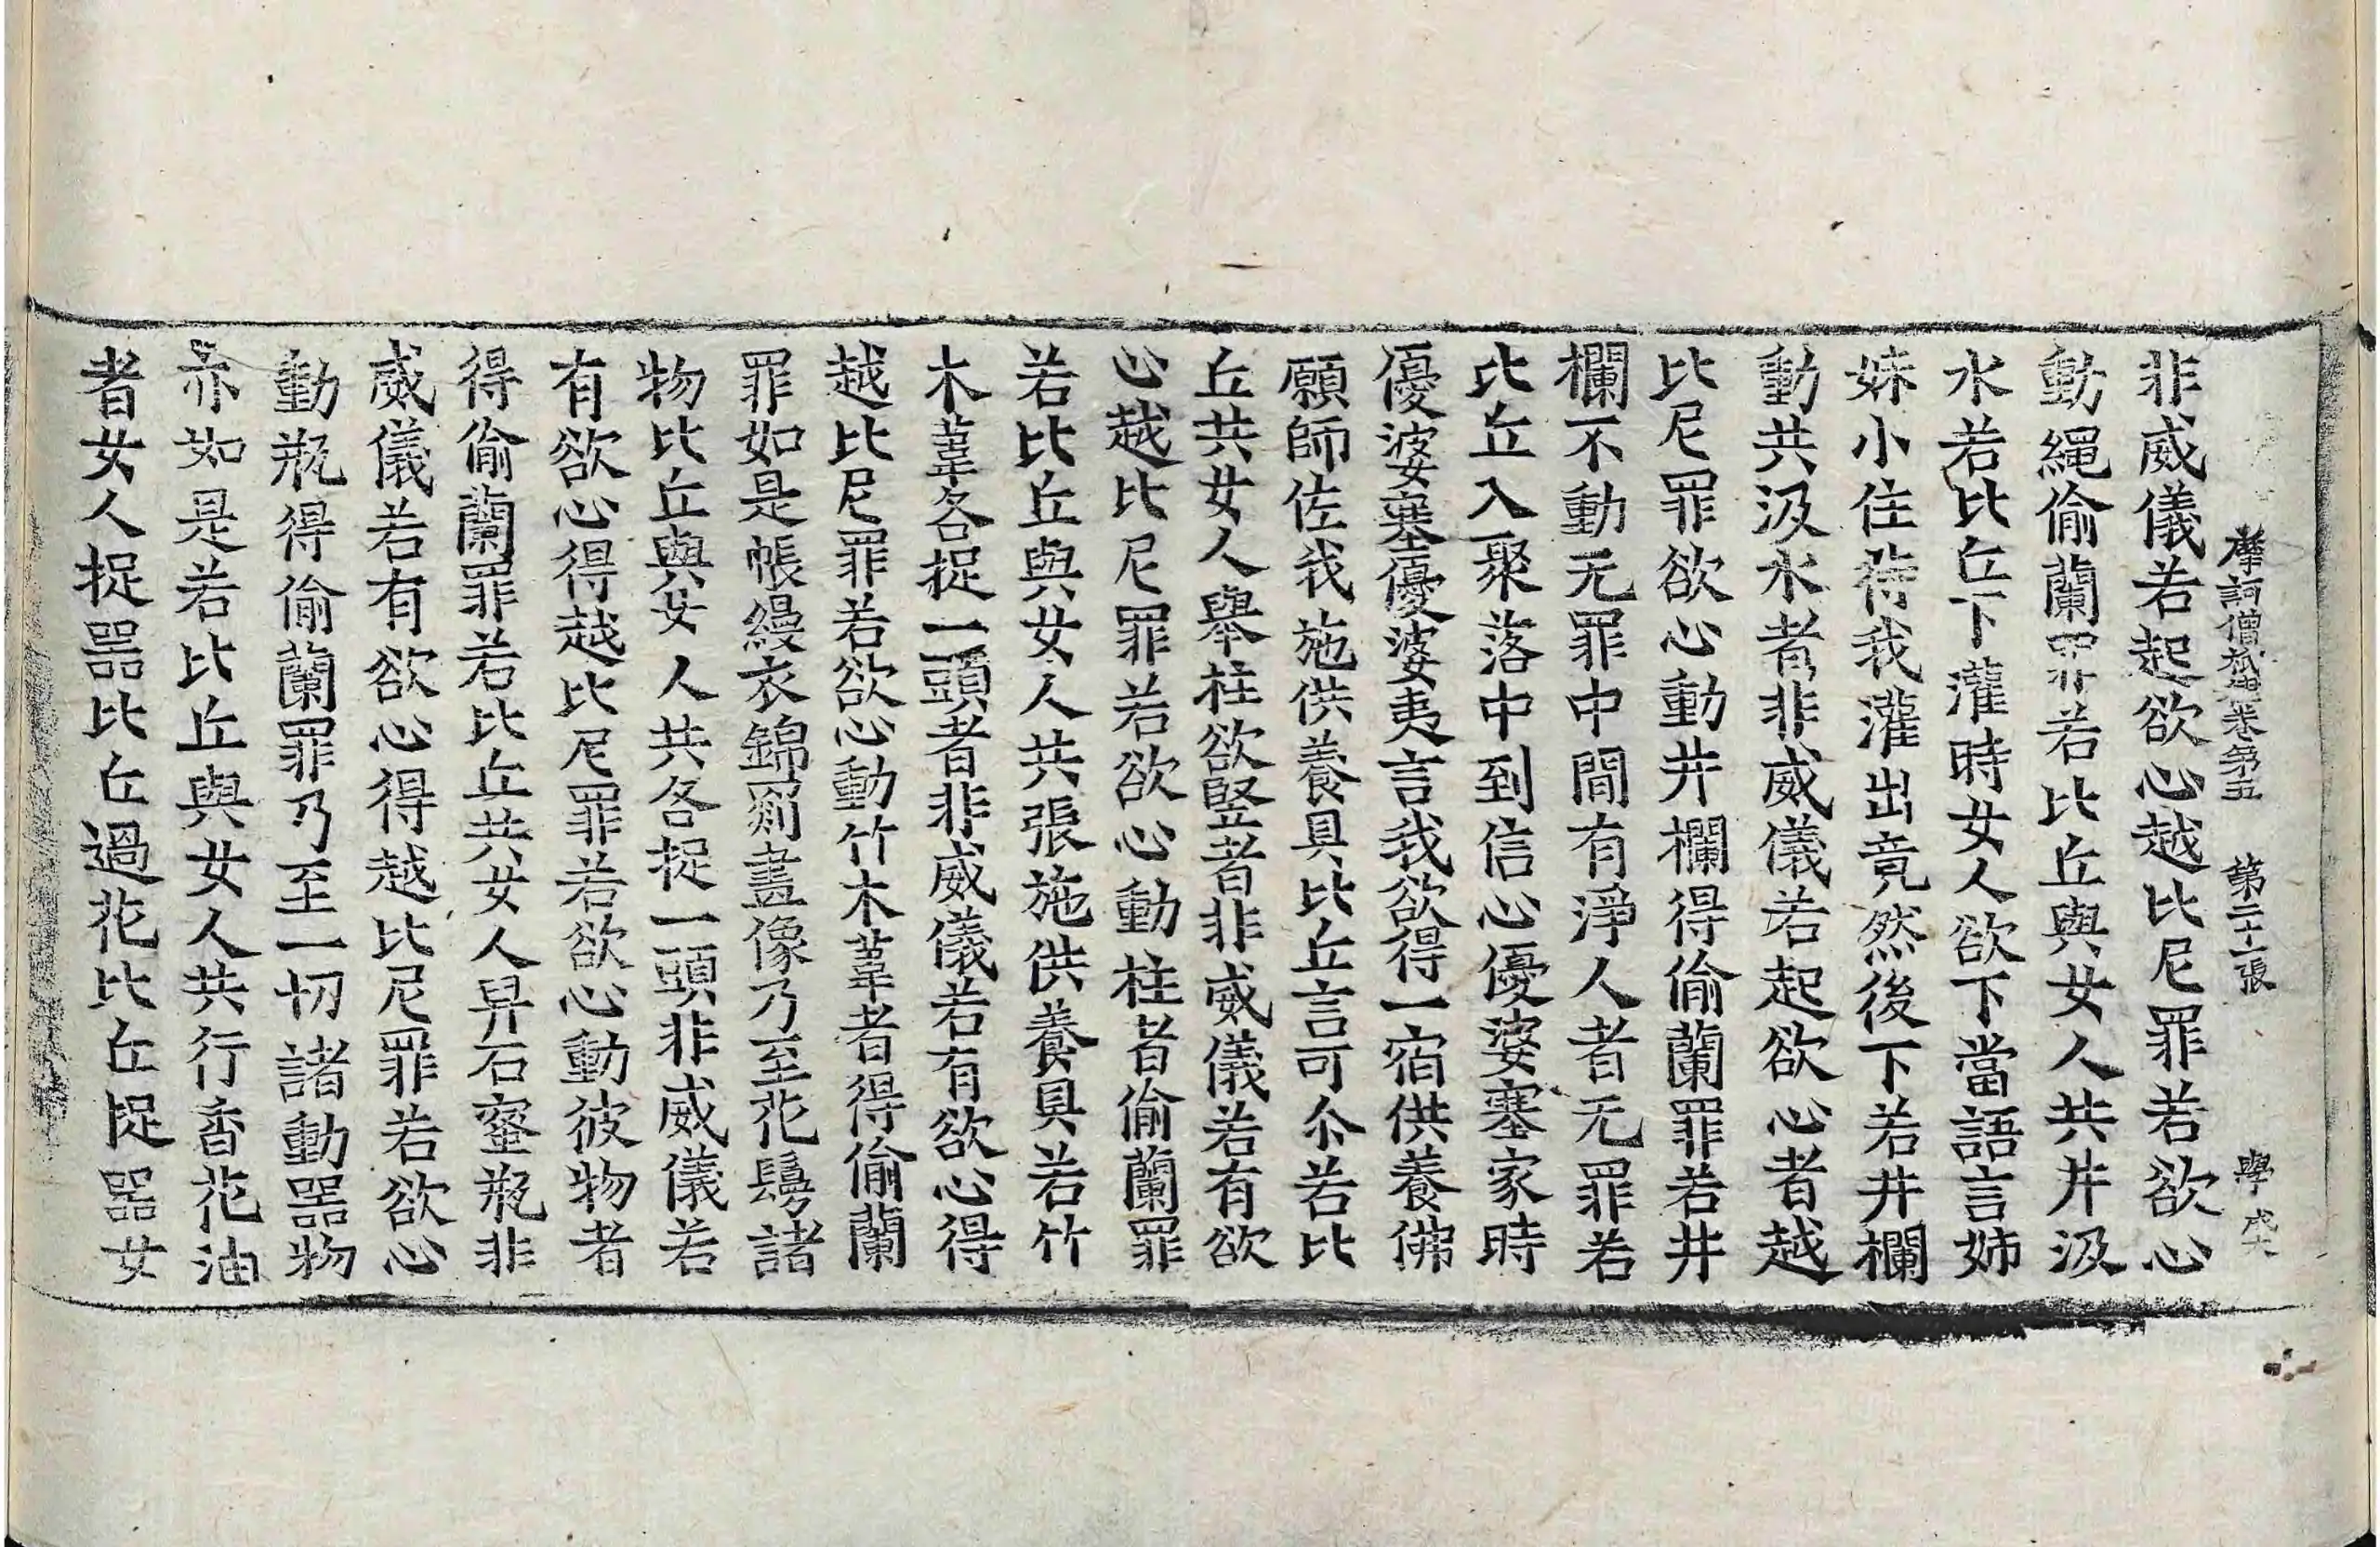 摩訶僧祇律卷第五　第二十一張　學　戍六
非威儀若起欲心越比尼罪若欲心
動繩偷蘭罪若比丘與女人共井汲
水若比丘下灌時女人欲下當語言姉
妹小住待我灌出竟然後下若井欄
動共汲水者非威儀若起欲心者越
比尼罪欲心動井欄得偷蘭罪若井
欄不動无罪中間有淨人者无罪若
比丘入聚落中到信心優婆塞家時
優婆塞優婆夷言我欲得一宿供養佛
願師佐我施供養具比丘言可尒若比
丘共女人舉柱欲竪者非威儀若有欲
心越比尼罪若欲心動柱者偷蘭罪
若比丘與女人共張施供養具若竹
木葦各捉一頭者非威儀若有欲心得
越比尼罪若欲心動竹木葦者得偷蘭
罪如是帳縵衣錦罽畫像乃至花鬘諸
物比丘與女人共各捉一頭非威儀若
有欲心得越比尼罪若欲心動彼物者
得偷蘭罪若比丘共女人舁石蜜瓶非
威儀若有欲心得越比尼罪若欲心
動瓶得偷蘭罪乃至一切諸動器物
亦如是若比丘與女人共行香花油
者女人捉器比丘過花比丘捉器女